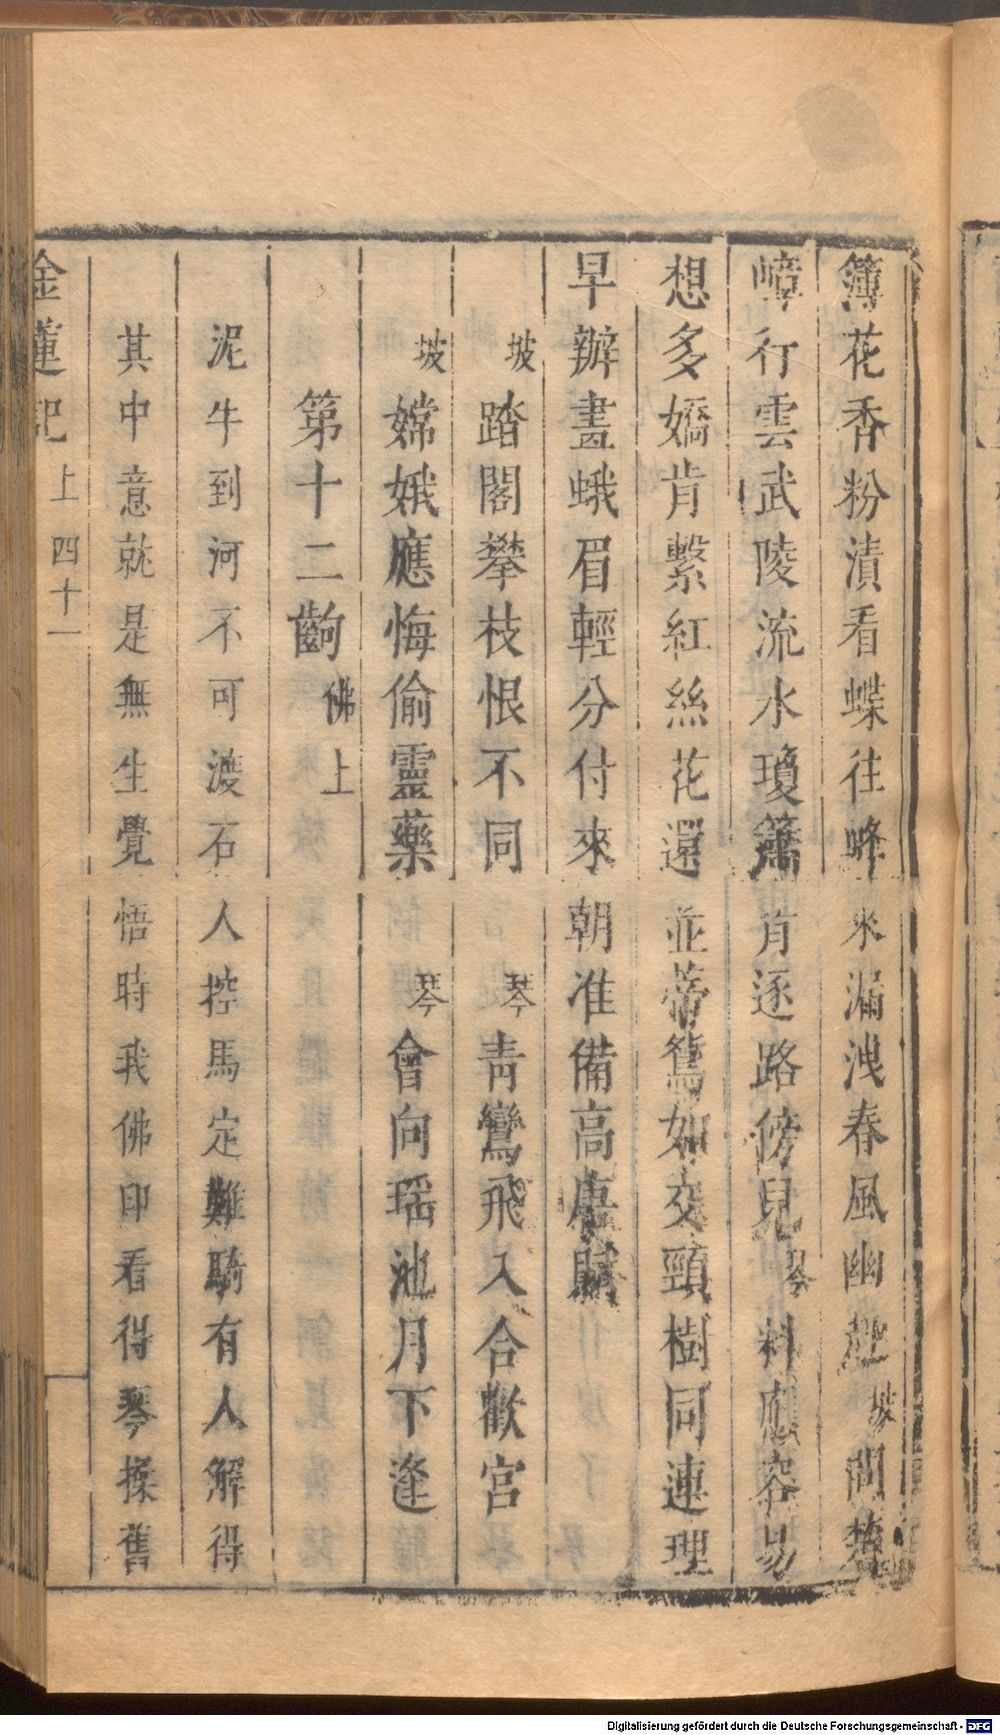 簿花香粉漬看蝶往蜂來漏洩春風幽趣坡問楚
嶂行雲武陵流水瓊簫肯逐路傍兒琴料應容易
想多嬌肯繫紅絲花還並蒂鴛如交頸樹同連理
早辦畫蛾眉輕分付來朝准備高唐賦
坡踏閣攀枝恨不同琴青鸞飛入合歡宮
坡嫦娥應悔偷靈藥琴會向瑶池月下逢
第十二齣佛上
泥牛到河不可渡石人控馬定難騎有人解得
其中意就是無生覺悟時我佛印看得琴操舊
金蓮記 上 四十一
Digitalisierung gefördert durch die Deutsche Forschungsgemeinschaft - DFG